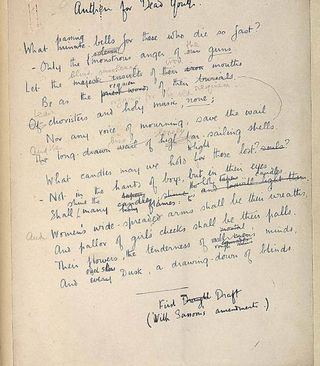 Anthem for Dead Youth.
What passing bells for these who die so fast?
minute solemn
- Only the monstrous anger of our guns
the
blind
Let the majestic insults of their iron mouths
requiem
Be as the priest words of their burials.
Of choristers and holy music, none;
Nor any voice of mourning, save the wail
The long-drawn wail of high far-sailing shells.
to light
What candles may we hold for these lost souls?
- Not in the hands of boys, but in their eyes
Shall many candles
And Women's wide-spreaded arms shall be their wreaths,
And pallor of girls cheeks shall be their palls.
mortal
Their flowers, the tenderness of minds,
each slow
And every Dusk, a drawing-down of blinds.
First Draft
(With Sassoon's amendments.)